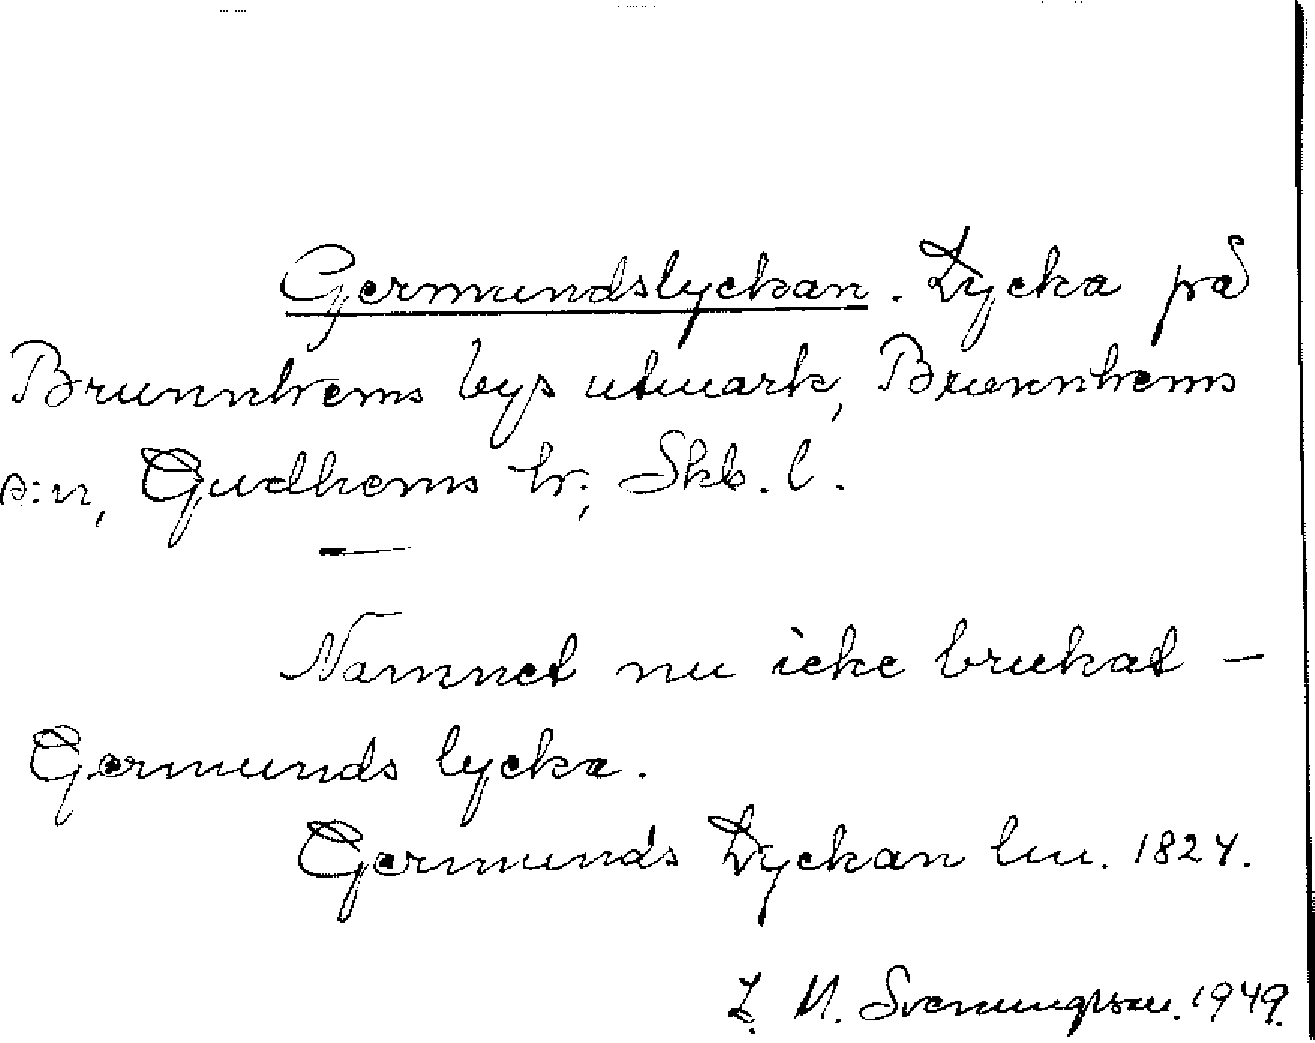 Germundslyckan. Lycka på
Brunnhems bys utmark, Brunnhems
s:n, Gudhems hr, Skb. l.
—
Namnet nu icke brukat –
Germunds lycka.
Germunds Lyckan lm. 1824.
L. M. Svenungsson. 1949.